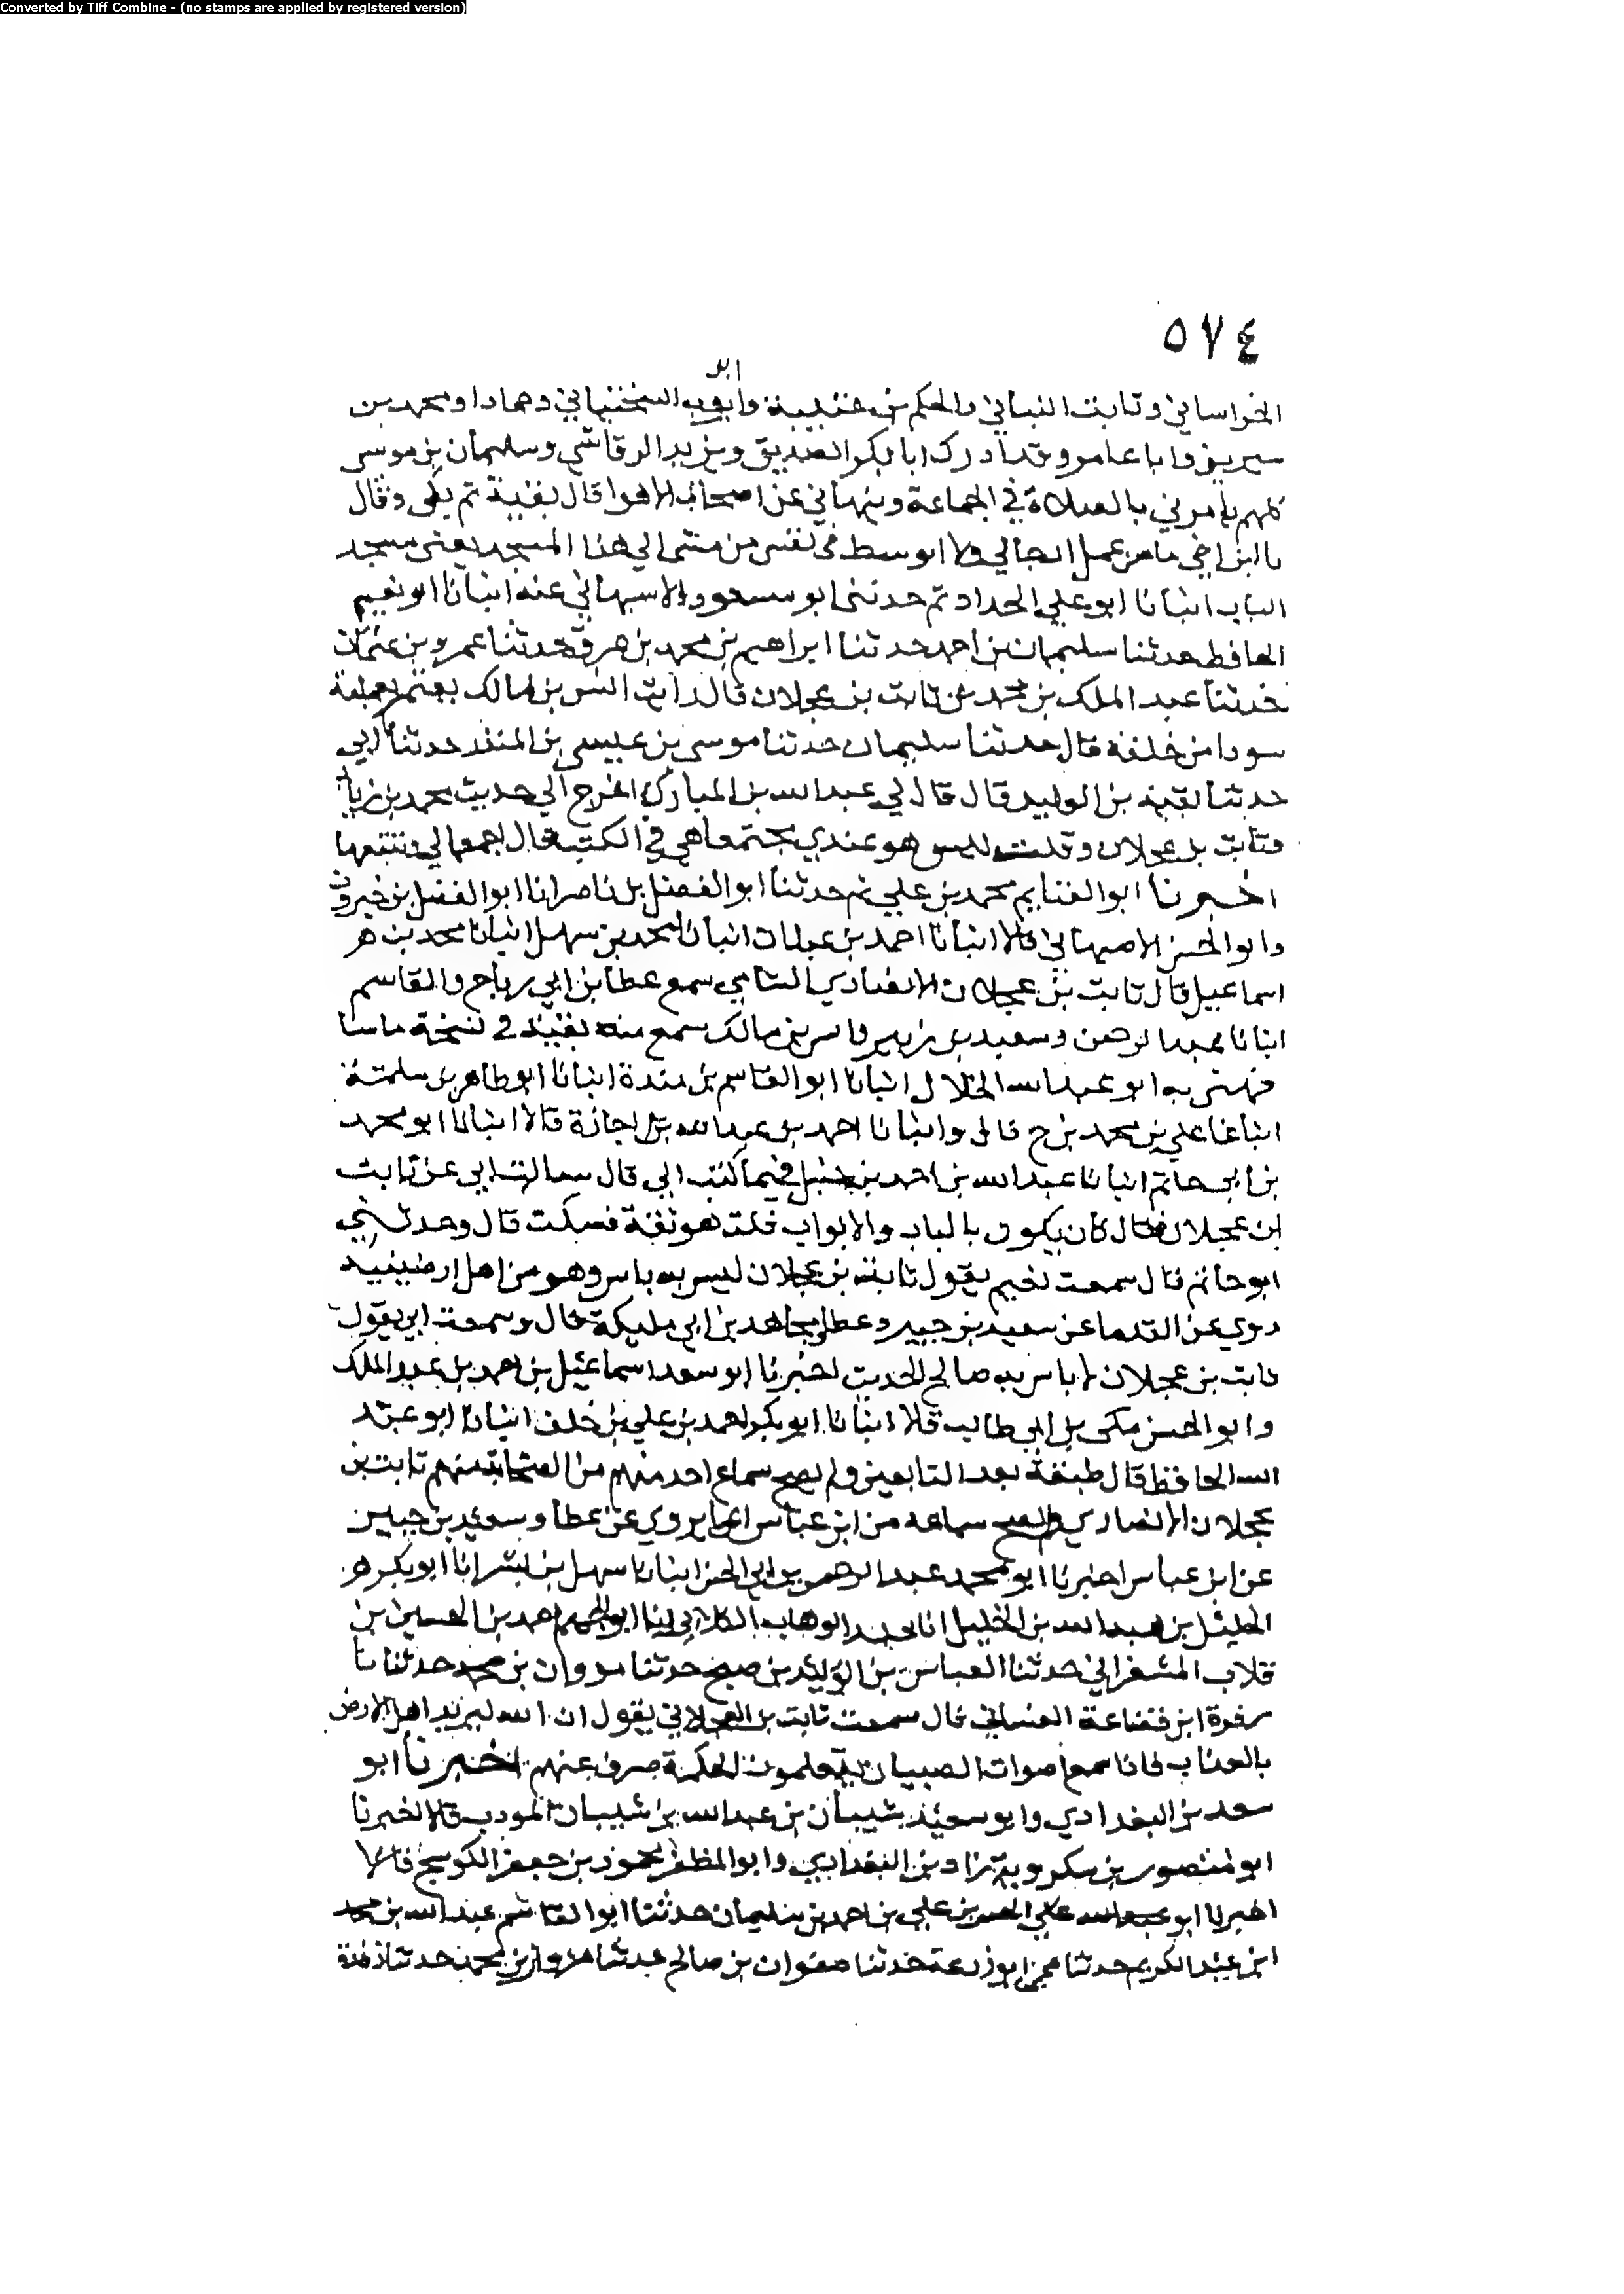 Converted by Tiff Combine - (no stamps are applied by registered version)
٥٧٤
الخراساني وثابت البناني والحكم بن عتيبة وايوب السختياني وحمادا ومحمد بن
سيرين وابا عامر وقد ادرك ابا بكر الصديق ويزيد الرقاشي وسليمان بن موسى
كلهم يامرني بالصلاة في الجماعة وينهاني عن اصحاب الاهوا قال بقية ثم بكى وقال
يا ابن اخي ما من عمل ارجا لي ولا اوسط في نفسي من مشي الي هذا المسجد يعني مسجد
الباب انبانا ابو علي الحداد ثم حدثني ابو مسعود الاسبهاني عنه انبانا ابو نعيم
الحافظ حدثنا سليمان بن احمد حدثنا ابراهيم بن محمد بن عرق حدثنا عمرو بن عثمان
حدثنا عبد الملك بن محمد عن ثابت بن عجلان قال رايت انس بن مالك يعتم بعمامة
سودا من خلفه قال حدثنا سليمان حدثنا موسى بن عيسى بن المنذر حدثنا ابي
حدثنا بقية بن الوليد قال قال لي عبد الله بن المبارك اخرج الي حديث محمد بن زياد
وثابت بن عجلان وقلت ليس هو عندي مجتمعا هي في الكتب قال اجمعها لي وتتبعها
اخبرنا ابو الغنايم محمد بن علي ثم حدثنا ابو الفضل بن ناصر انا ابو الفضل بن خيرون
وابو الحسن الاصبهاني قالا انبانا احمد بن عبدان انبانا محمد بن سهل انبانا محمد بن
اسماعيل قال ثابت بن عجلان الانصاري الشامي سمع عطا بن ابي رباح والقاسم
انبانا عبد الرحمن وسعيد بن وانس بن مالك سمع منه بقية في نسخة ما
به ابو عبد الله الخلال انبانا ابو القاسم بن مندة انبانا ابو طاهر بن سلمة
علي بن محمد بن ح قال وانبانا احمد بن عبد الله اجازة قالا انبانا ابو محمد
بن ابي حاتم انبانا عبد الله بن احمد بن حنبل فيما كتب الي قال سالت ابي عن ثابت
ابن عجلان فقال كان يكون بالباب والابواب قلت هو ثقة فسكت قال وحدثني
ابو حاتم قال سمعت دحيم يقول ثابت بن عجلان ليس به باس وهو من اهل ارمينية
روي عن القدما عن سعيد بن جبير وعطا ومجاهد بن ابي مليكة قال وسمعت ابي يقول
ثابت بن عجلان لا باس به صالح الحديث اخبرنا ابو سعد اسماعيل بن احمد بن عبد الملك
وابو الحسن مكي بن ابي طالب قالا انبانا ابو بكر احمد بن علي بن خلف انبانا ابو عبد
الله الحافظ قال طبقة بعد التابعين ولم يصح سماع احد منهم من الصحابة منهم ثابت بن
عجلان الانصاري ولم يصح سماعه من ابن عباس انما يروي عن عطا وسعيد بن جبير
عن ابن عباس اخبرنا ابو محمد عبد الرحمن بن ابي الحسن انبانا سهل بن بشر انا ابو بكر
الخليل بن هبة الله بن الخليل انا عبد الوهاب الكلابي انا ابو الجهم احمد بن الحسين بن
طلاب المشغراني حدثنا العباس بن الوليد بن صبح حدثنا مروان بن محمد حدثنا
رفدة ابن قضاعة الغساني قال سمعت ثابت بن العجلاني يقول ان الله ليريد اهل الارض
بالعذاب فاذا سمع اصوات الصبيان يتعلمون الحكمة صرف عنهم اخبرنا ابو
سعد بن البغدادي وابو سعيد شيبان بن عبد الله بن شيبان المودب قالا اخبرنا
ابو منصور بن شكرويه زاد بن البغدادي وابو المظفر محمود بن جعفر الكوسج قالا
اخبرنا ابو علي الحسن بن علي بن احمد بن سليمان حدثنا ابو القاسم عبد الله بن محمد
ابن عبد الكريم حدثنا عمي ابو زرعة حدثنا صفوان بن صالح حدثنا مروان بن محمد حدثنا رفدة